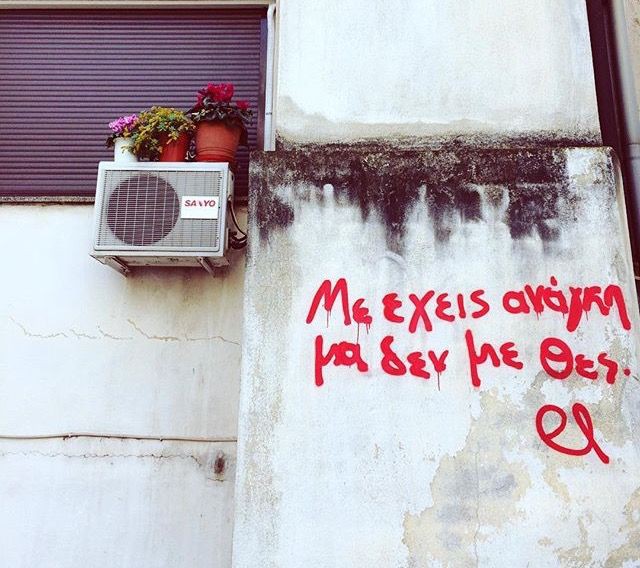 SANYO
Με εχεις ανάγκη
μα δεν με θες.